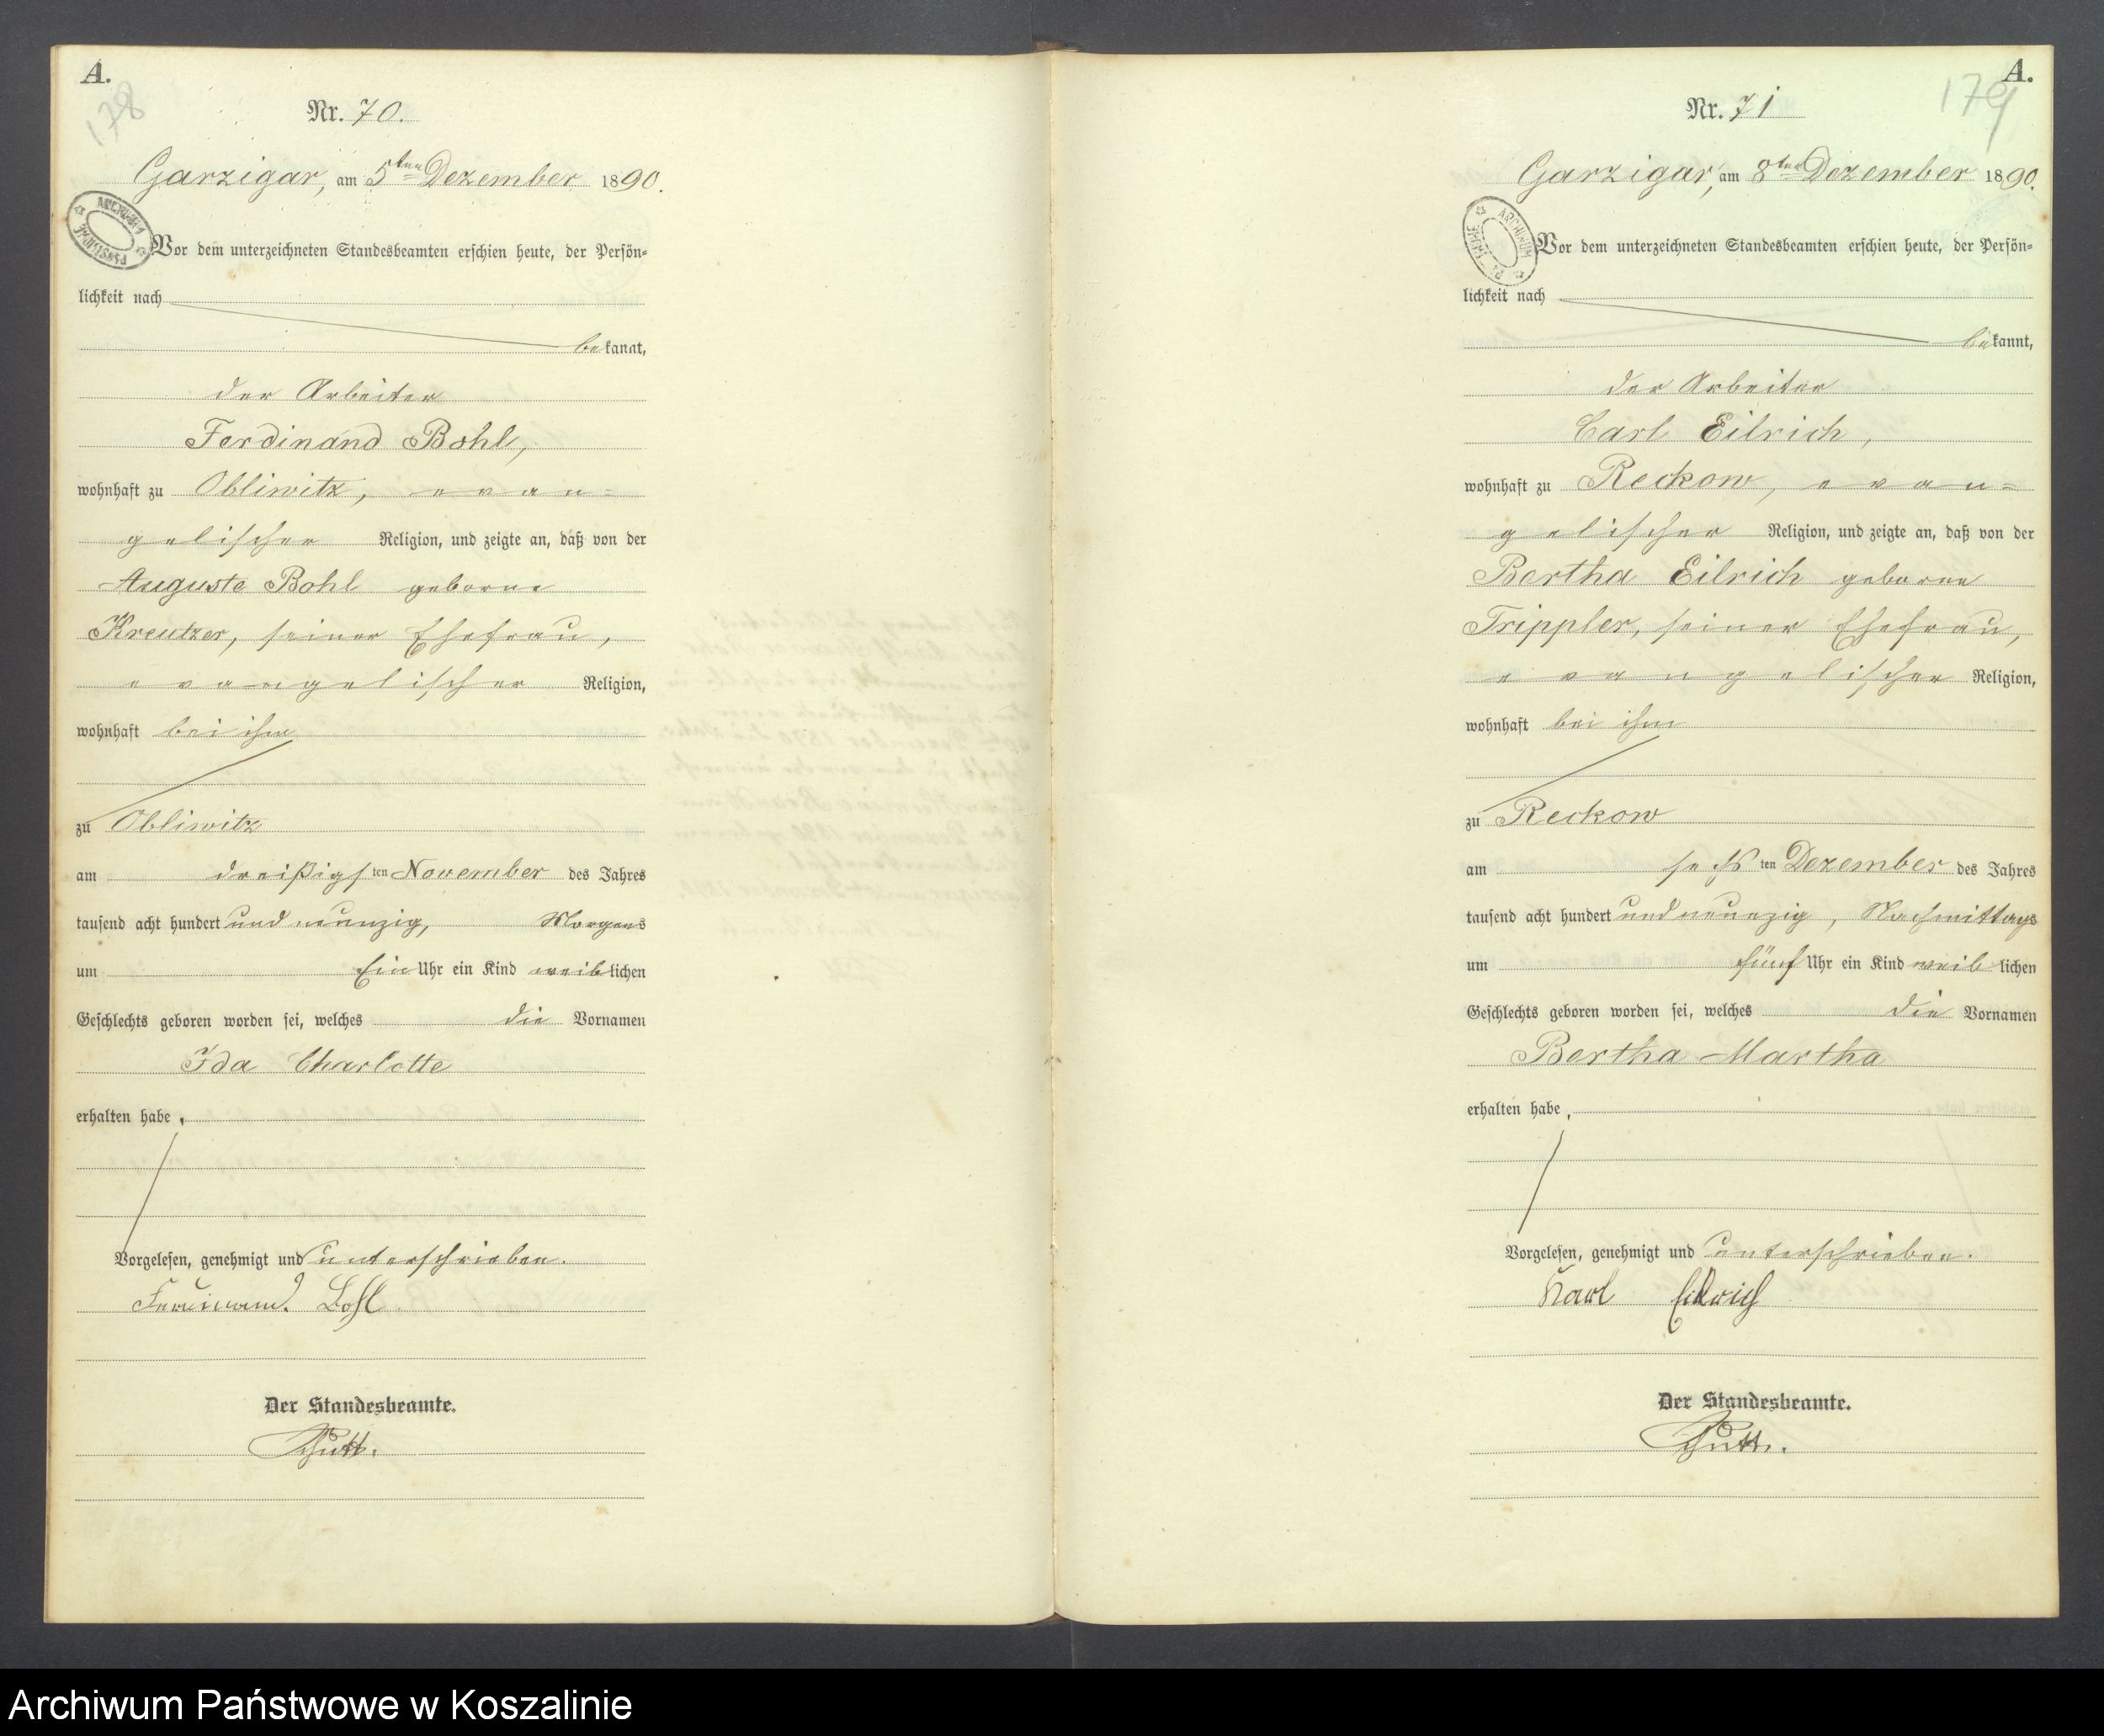 A.
178
Nr. 70.
Garzigar, am 5ten Dezember 1890.
Vor dem unterzeichneten Standesbeamten erschien heute, der Persön-
lichkeit nach
bekannt,
der Arbeiter
Ferdinand Bohl,
wohnhaft zu Obliwitz, evan-
gelischer Religion, und zeigte an, daß von der
Auguste Bohl geborne
Kreutzer, seiner Ehefrau,
evangelischer Religion,
wohnhaft bei ihm
zu Obliwitz
am dreißigsten November des Jahres
tausend acht hundert und neunzig, Morgens
um Ein Uhr ein Kind weiblichen
Geschlechts geboren worden sei, welches die Vornamen
Ida Charlotte
erhalten habe.
Vorgelesen, genehmigt und unterschrieben.
Ferdinand Bohl
Der Standesbeamte.
A.
179
Nr. 71
Garzigar, am 8ten Dezember 1890.
ARCHIWUM
Vor dem unterzeichneten Standesbeamten erschien heute, der Persön-
lichkeit nach
bekannt,
der Arbeiter
Carl Eilrich,
wohnhaft zu Reckow, evan-
gelischer Religion, und zeigte an, daß von der
Bertha Eilrich geborne
Trippler, seiner Ehefrau,
evangelischer Religion,
wohnhaft bei ihm
zu Reckow
am sechsten Dezember des Jahres
tausend acht hundert und neunzig, Nachmittags
um fünf Uhr ein Kind weiblichen
Geschlechts geboren worden sei, welches die Vornamen
Bertha Martha
erhalten habe.
Vorgelesen, genehmigt und unterschrieben.
Karl Eilrich
Der Standesbeamte.
Archiwum Państwowe w Koszalinie